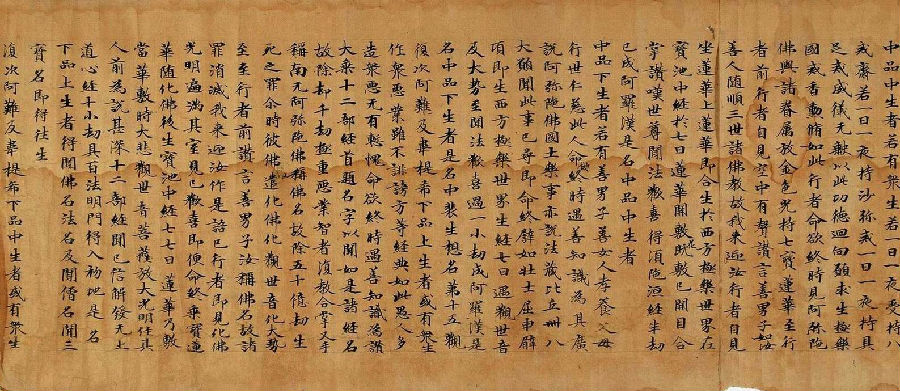 中品中生者若有衆生若一日一夜受持八
戒齋若一日一夜持沙弥戒一日一夜持具
足戒威儀无缺以此功德迴向願求生極樂
國戒香勳脩如此行者命欲終時見阿弥陁
佛與諸眷属放金色光持七寳蓮華至行
者前行者自見空中有聲讃言善男子如汝
善人隨順三世諸佛教故我来迎汝行者自見
坐蓮華上蓮華即合生扵西方極樂世界在
寳池中經扵七日蓮華開敷既敷已開目合
掌讃嘆世尊聞法歡喜得湏陁洹經半劫
已成阿羅漢是名中品中生者
中品下生者若有善男子善女人孝養父母
行世仁慈此人命終時遇善知識為其廣
說阿弥陁佛國土樂事亦說法藏比丘卌八
大願聞此事已尋即命終辟如壮士屈申臂
項即生西方極樂世界生經七日遇觀世音
及大勢至聞法歡喜過一小劫成阿羅漢是
名中品下生者是名中輩生想名第十五觀
復次阿難及韋提希下品上生者或有衆生
作衆悪業雖不誹謗方等經典如此愚人多
造衆悪无有慙愧命欲終時遇善知識為讃
大乗十二部經首題名字以聞如是諸經名
故除却千劫極重悪業智者復教合掌叉手
稱南无阿弥陁佛稱佛名故除五十億劫生
死之罪尒時彼佛即遣化佛化觀世音化大勢
至至行者前讃言善男子汝稱佛名故諸
罪消滅我来迎汝作是語已行者即見化佛
光明遍滿其室見已歡喜即便命終乗寳蓮
華隨化佛後生寳池中經七七日蓮華乃敷
當華敷時大悲觀世音菩薩放大光明住其
人前為說甚深十二部經聞已信解發无上
道心經十小劫具百法明門得入初地是名
下品上生者得聞佛名法名及聞僧名聞三
寳名即得往生
復次阿難及韋提希下品中生者或有衆生